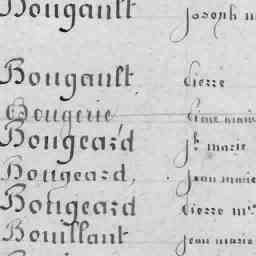 Bougault Joseph
Bougault Pierre
Bougerie
Bougeard Jh marie
Bougeard, Jean marie
Bougeard Pierre
Bouillant Jean marie